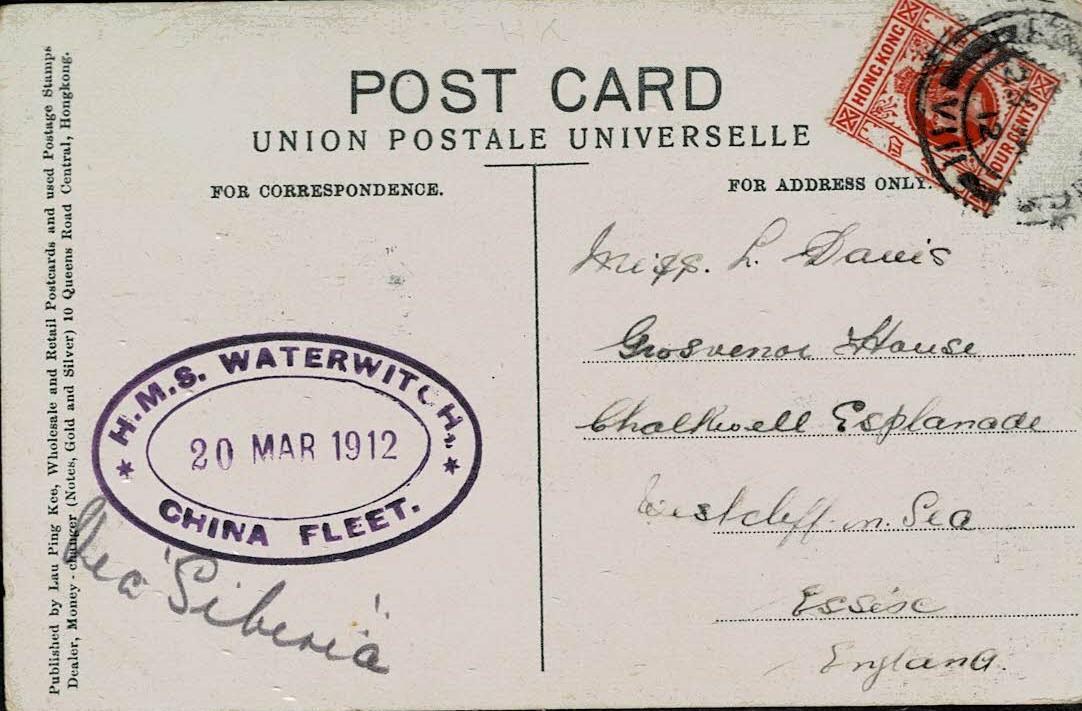 POST CARD
UNION POSTALE UNIVERSELLE
FOR CORRESPONDENCE.
FOR ADDRESS ONLY.
Published by Lau Ping Kee, Wholesale and Retail Postcards and used Postage Stamps
Dealer, Money-changer (Notes, Gold and Silver) 10 Queens Road Central, Hongkong.
HONG KONG
FOUR CENTS
VIII
12
H.M.S. WATERWITCH,
20 MAR 1912
CHINA FLEET.
Via "Siberia"
Miss. L. Davis
Grosvenor House
Chalkwell Esplanade
Westcliff. n. Sea
Essex
England.